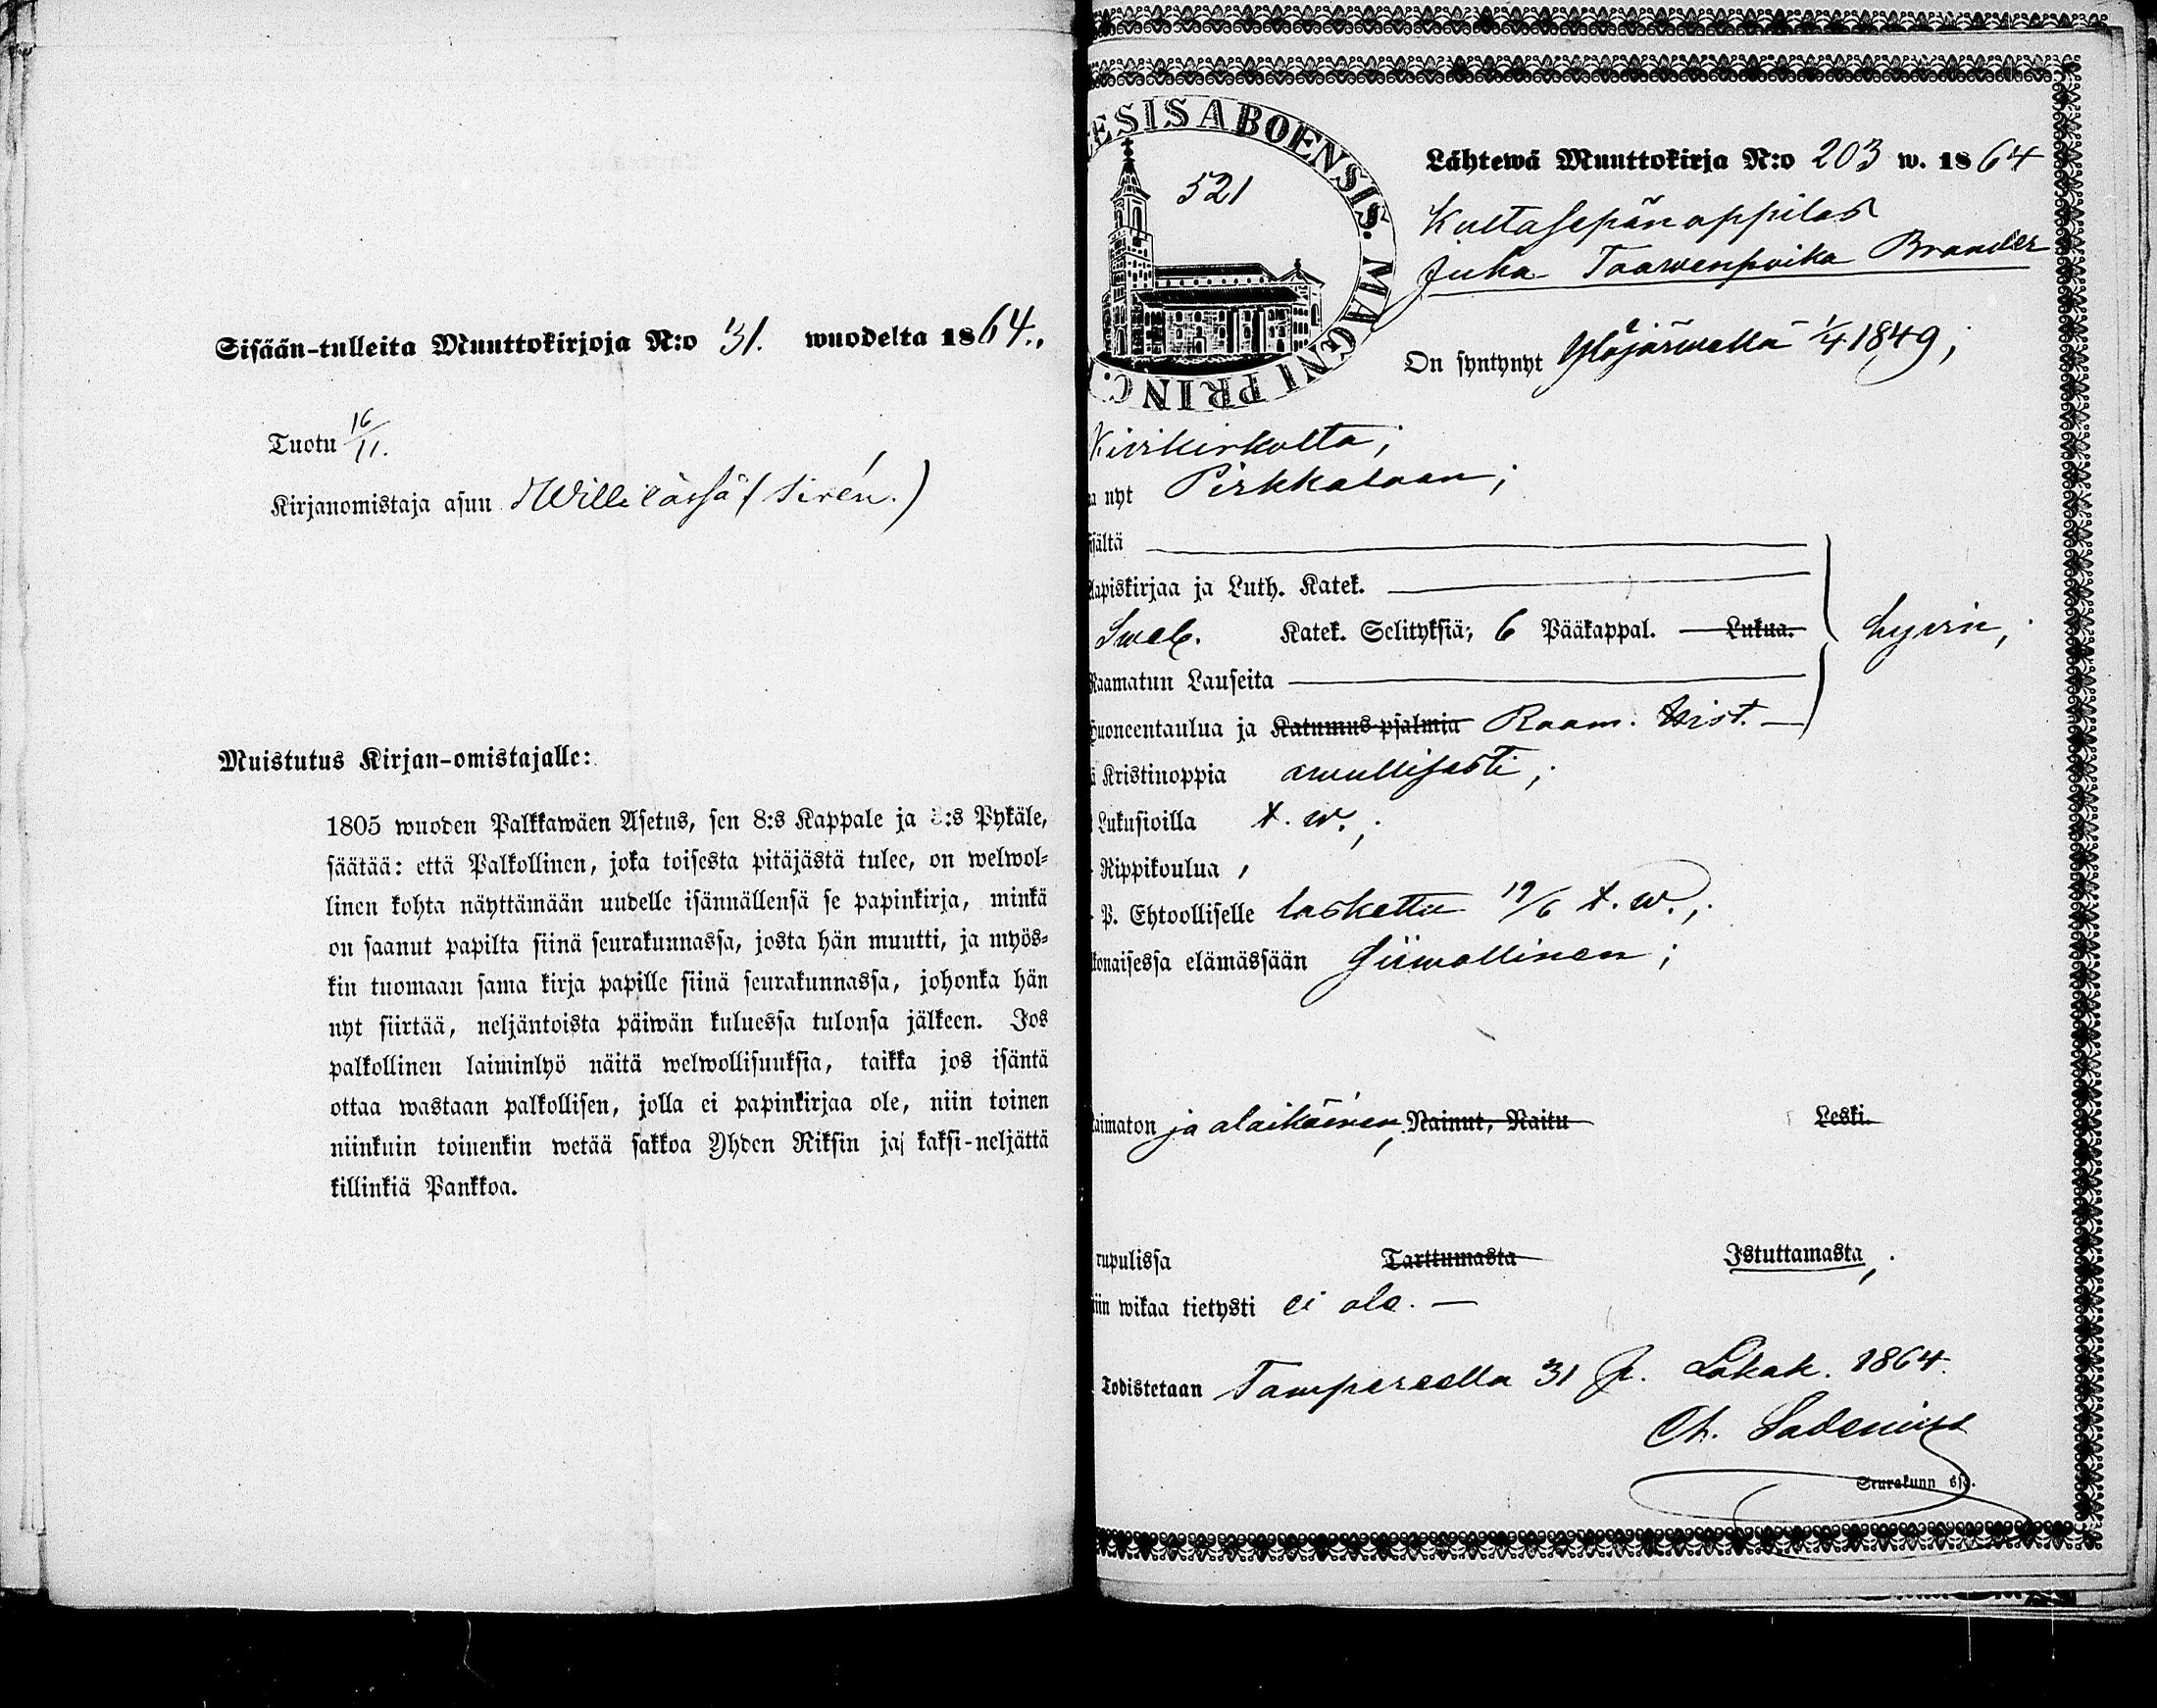 Sisään-tulleita Muuttokirjoja N:o 31. wuodelta 1864.,
Tuotu 16/11.
Kirjanomistaja asuu Willilässä (Sirén.)
Muistutus Kirjan-omistajalle:
1805 wuoden Palkkawäen Asetus, sen 8:s Kappale ja :s Pykäle,
säätää: että Palkollinen, joka toisesta pitäjästä tulee, on welwol-
linen kohta näyttämään uudelle isännällensä se papinkirja, minkä
on saanut papilta siinä seurakunnassa, josta hän muutti, ja myös-
kin tuomaan sama kirja papille siinä seurakunnassa, johonka hän
nyt siirtää, neljäntoista päiwän kuluessa tulonsa jälkeen. Jos
palkollinen laiminlyö näitä welwollisuuksia, taikka jos isäntä
ottaa wastaan palkollisen, jolla ei papinkirjaa ole, niin toinen
niinkuin toinenkin wetää sakkoa Yhden Riksin ja kaksi-neljättä
killinkiä Pankkoa.
ESIS ABOENSIS. MAGNI PRINC.
521
Lähtewä Muuttokirja N:o 203 w. 1864
Kultasepänoppilas
Juha Taawenpoika Brander
On syntynyt Ylöjärwellä 1/4 1849;
Kiwikirkolta;
nyt Pirkkalaan;
sältä
Aapiskirjaa ja Luth. Katek.
Sweb. Katek. Selityksiä; 6 Pääkappal. Lukua. hywin;
Raamatun Lauseita
Huoneentaulua ja Katumus-psalmia Raam. Hist.
Kristinoppia awullisesti;
Lukusioilla t. w.;
Rippikoulua,
P. Ehtoolliselle laskettu 19/6 t. w.;
konaisessa elämässään Siiwollinen;
aimaton ja alaikäinen; Nainut, Naitu Leski.
rupulissa Tarttumasta Istuttamasta;
iin wikaa tietysti ei ole. —
Todistetaan Tampereella 31 p. Lokak. 1864.
Ch. Sadenius
Seurakunn ssa.